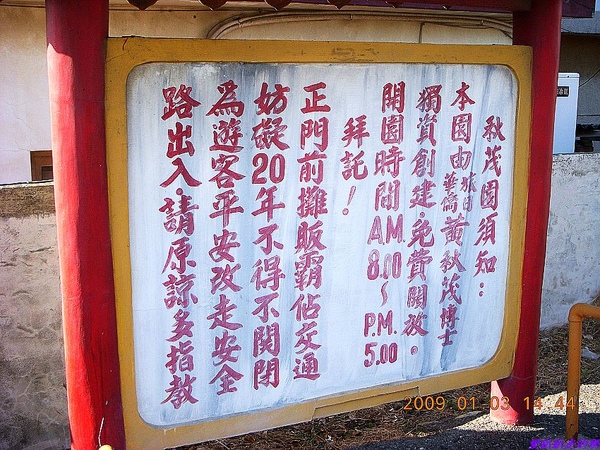 秋茂園須知：
本園由旅日華僑黃秋茂博士
獨資創建．免費開放。
開園時間A.M. 8.00～P.M. 5.00
拜託！
正門前攤販霸佔交通
妨礙20年不得不關閉
為遊客平安改走安全
路出入．請原諒多指教
2009 01 03 14:44